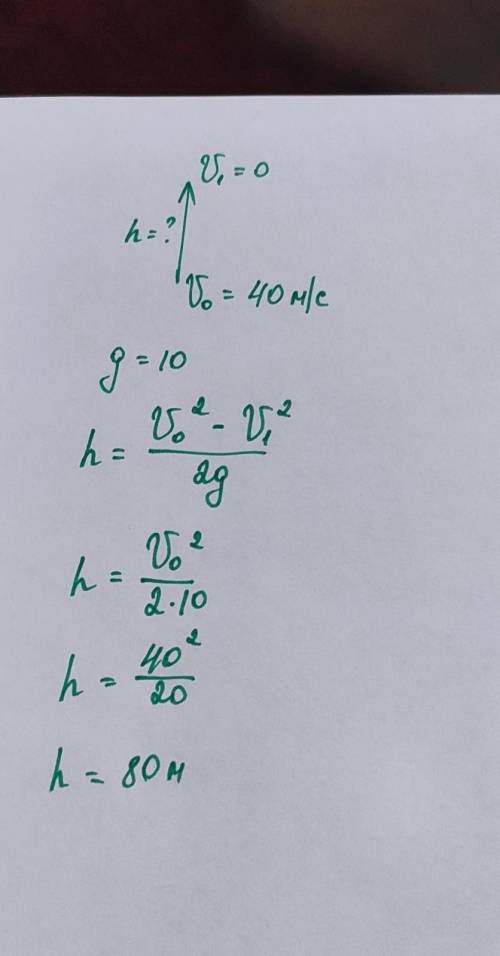 V₁ = 0
h = ?
V₀ = 40 м/с
g = 10
h = (V₀² - V₁²) / 2g
h = V₀² / 2·10
h = 40² / 20
h = 80 м